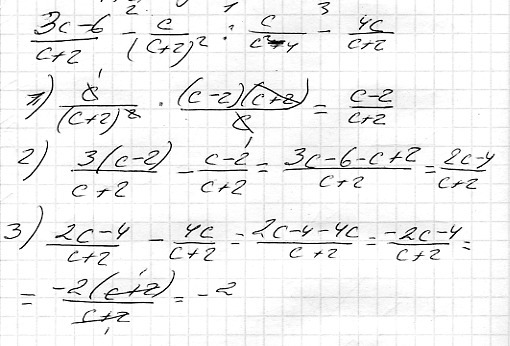 2 1 3
(3c-6)/(c+2) - c/(c+2)² : c/(c²-4) - 4c/(c+2)
1) c/(c+2)² · (c-2)(c+2)/c = (c-2)/(c+2)
2) 3(c-2)/(c+2) - (c-2)/(c+2) = (3c-6-c+2)/(c+2) = (2c-4)/(c+2)
3) (2c-4)/(c+2) - 4c/(c+2) = (2c-4-4c)/(c+2) = (-2c-4)/(c+2) =
= -2(c+2)/(c+2) = -2